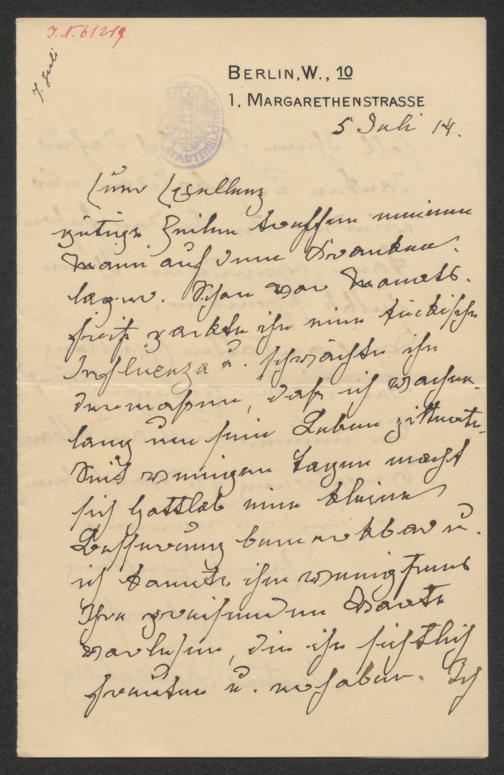 J.N. 61219
7. Juli
BERLIN, W., 10
1, MARGARETHENSTRASSE
5 Juli 14.
Euer Exzellenz
gütige Zeilen treffen meinen
Mann auf dem Kranken-
lager. Schon vor Monats-
frist packte ihn eine tückische
Influenza u. schwächte ihn
dermaßen, daß ich wochen-
lang um sein Leben zitterte.
Seit wenigen Tagen macht
sich Gottlob eine kleine
Besserung bemerkbar u.
ich konnte ihm wenigstens
Ihre preisenden Worte
vorlesen, die ihn sichtlich
freuten u. erhoben. Ich